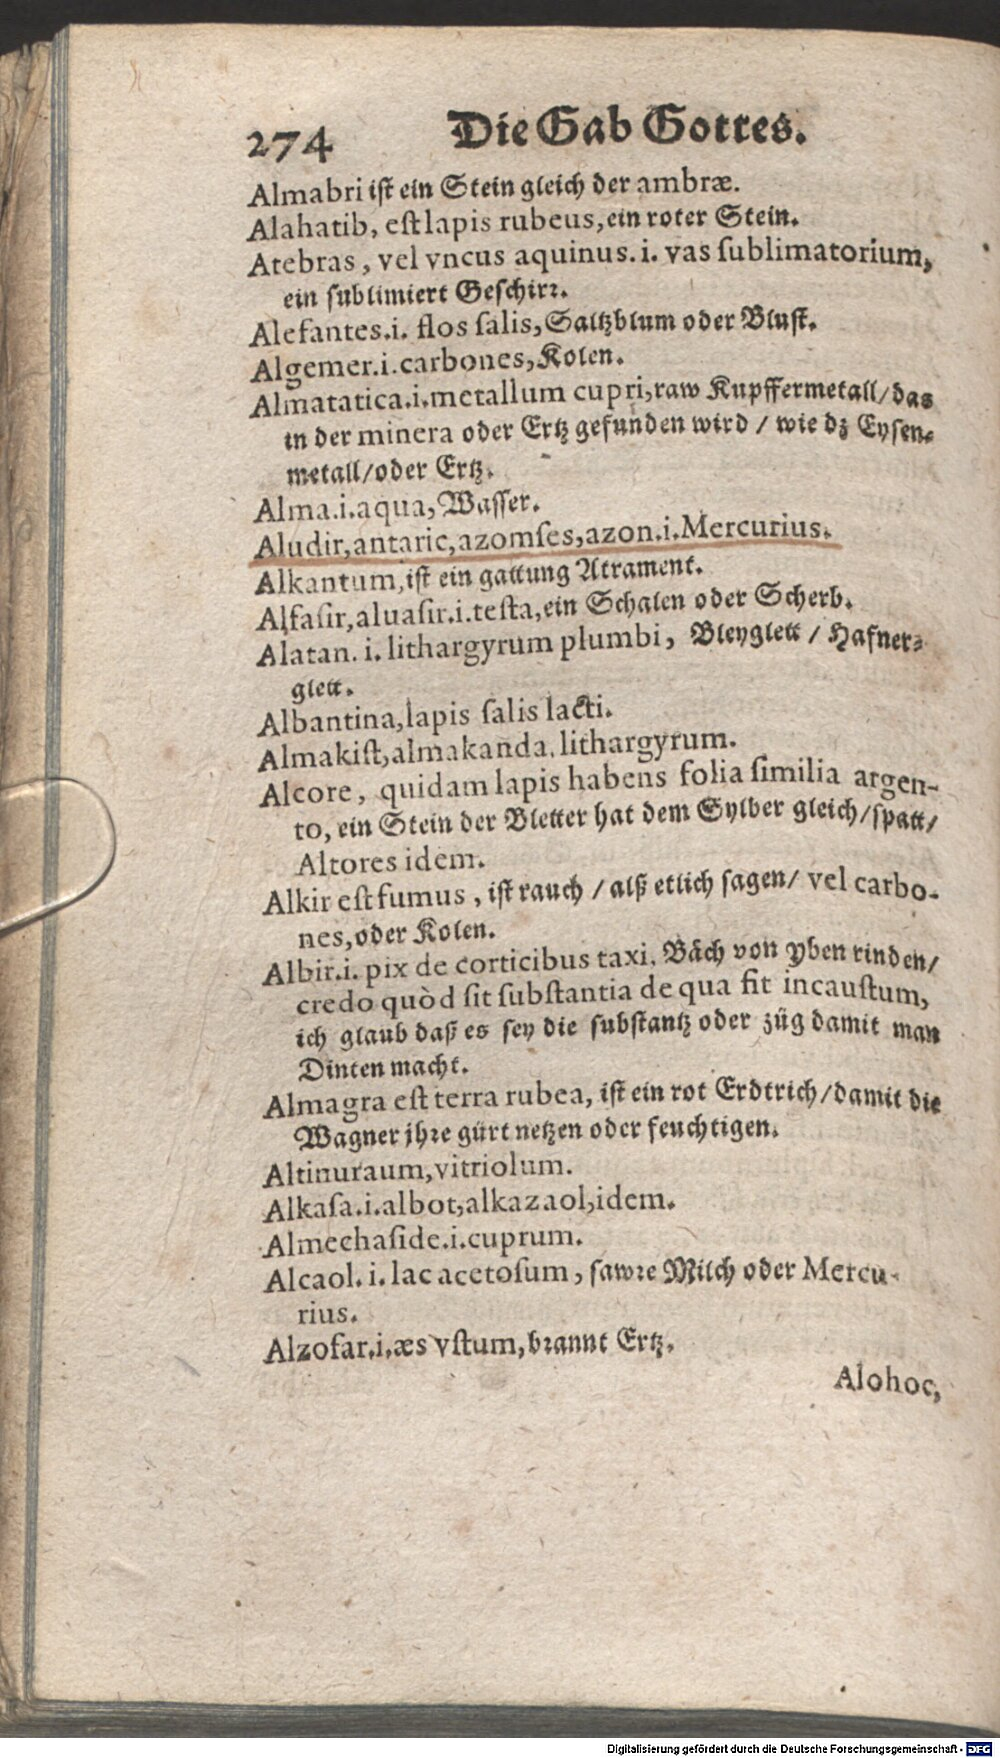 274 Die Gab Gottes.
Almabri ist ein Stein gleich der ambræ.
Alahatib, est lapis rubeus, ein roter Stein.
Atebras, vel vncus aquinus. i. vas sublimatorium,
ein sublimiert Geschirr.
Alefantes. i. flos salis, Saltzblum oder Blust.
Algemer. i. carbones, Kolen.
Almatatica. i. metallum cupri, raw Kupffermetall / das
in der minera oder Ertz gefunden wird / wie dz Eysen-
metall / oder Ertz.
Alma. i. aqua, Wasser.
Aludir, antaric, azomses, azon. i. Mercurius.
Alkantum, ist ein gattung Atrament.
Alfasir, aluasir. i. testa, ein Schalen oder Scherb.
Alatan. i. lithargyrum plumbi, Bleyglett / Hafner-
glett.
Albantina, lapis salis lacti.
Almakist, almakanda. lithargyrum.
Alcore, quidam lapis habens folia similia argen-
to, ein Stein der Bletter hat dem Sylber gleich / spatt /
Altores idem.
Alkir est fumus, ist rauch / alß etlich sagen / vel carbo-
nes, oder Kolen.
Albir. i. pix de corticibus taxi. Bäch von yben rinden /
credo quòd sit substantia de qua fit incaustum,
ich glaub daß es sey die substantz oder züg damit man
Dinten macht.
Almagra est terra rubea, ist ein rot Erdtrich / damit die
Wagner jhre gürt netzen oder feuchtigen.
Altinuraum, vitriolum.
Alkasa. i. albot, alkazaol, idem.
Almechaside. i. cuprum.
Alcaol. i. lac acetosum, sawre Milch oder Mercu-
rius.
Alzofar. i. æs vstum, brannt Ertz.
Alohoc,
Digitalisierung gefördert durch die Deutsche Forschungsgemeinschaft - DFG